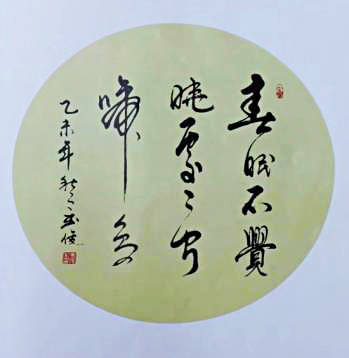 春眠不覺
曉處々聞
啼鳥
乙未年秋